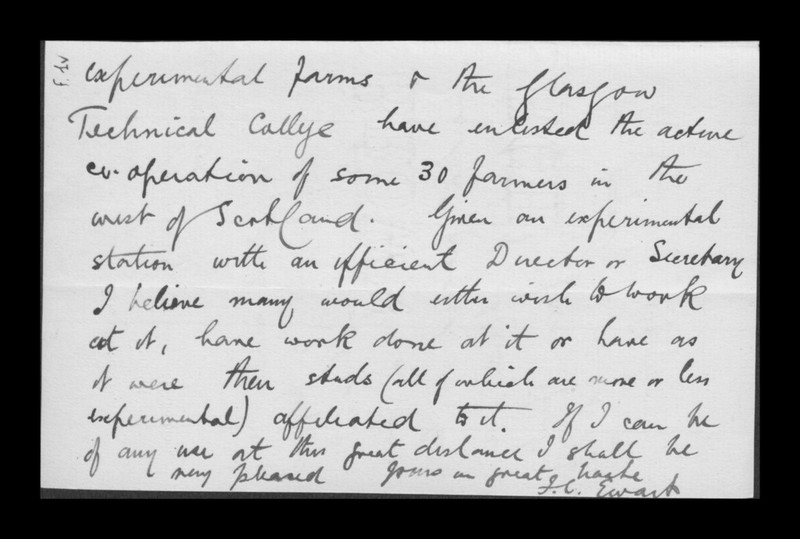 experimental farms & the Glasgow
Technical College have enlisted the active
co-operation of some 30 farmers in the
west of Scotland. Given an experimental
station with an efficient Director or Secretary
I believe many would either wish to work
at it, have work done at it or have as
it were their studs (all of which are more or less
experimental) affiliated to it. If I can be
of any use at this great distance I shall be
very pleased Yours in great haste
J.C. Ewart